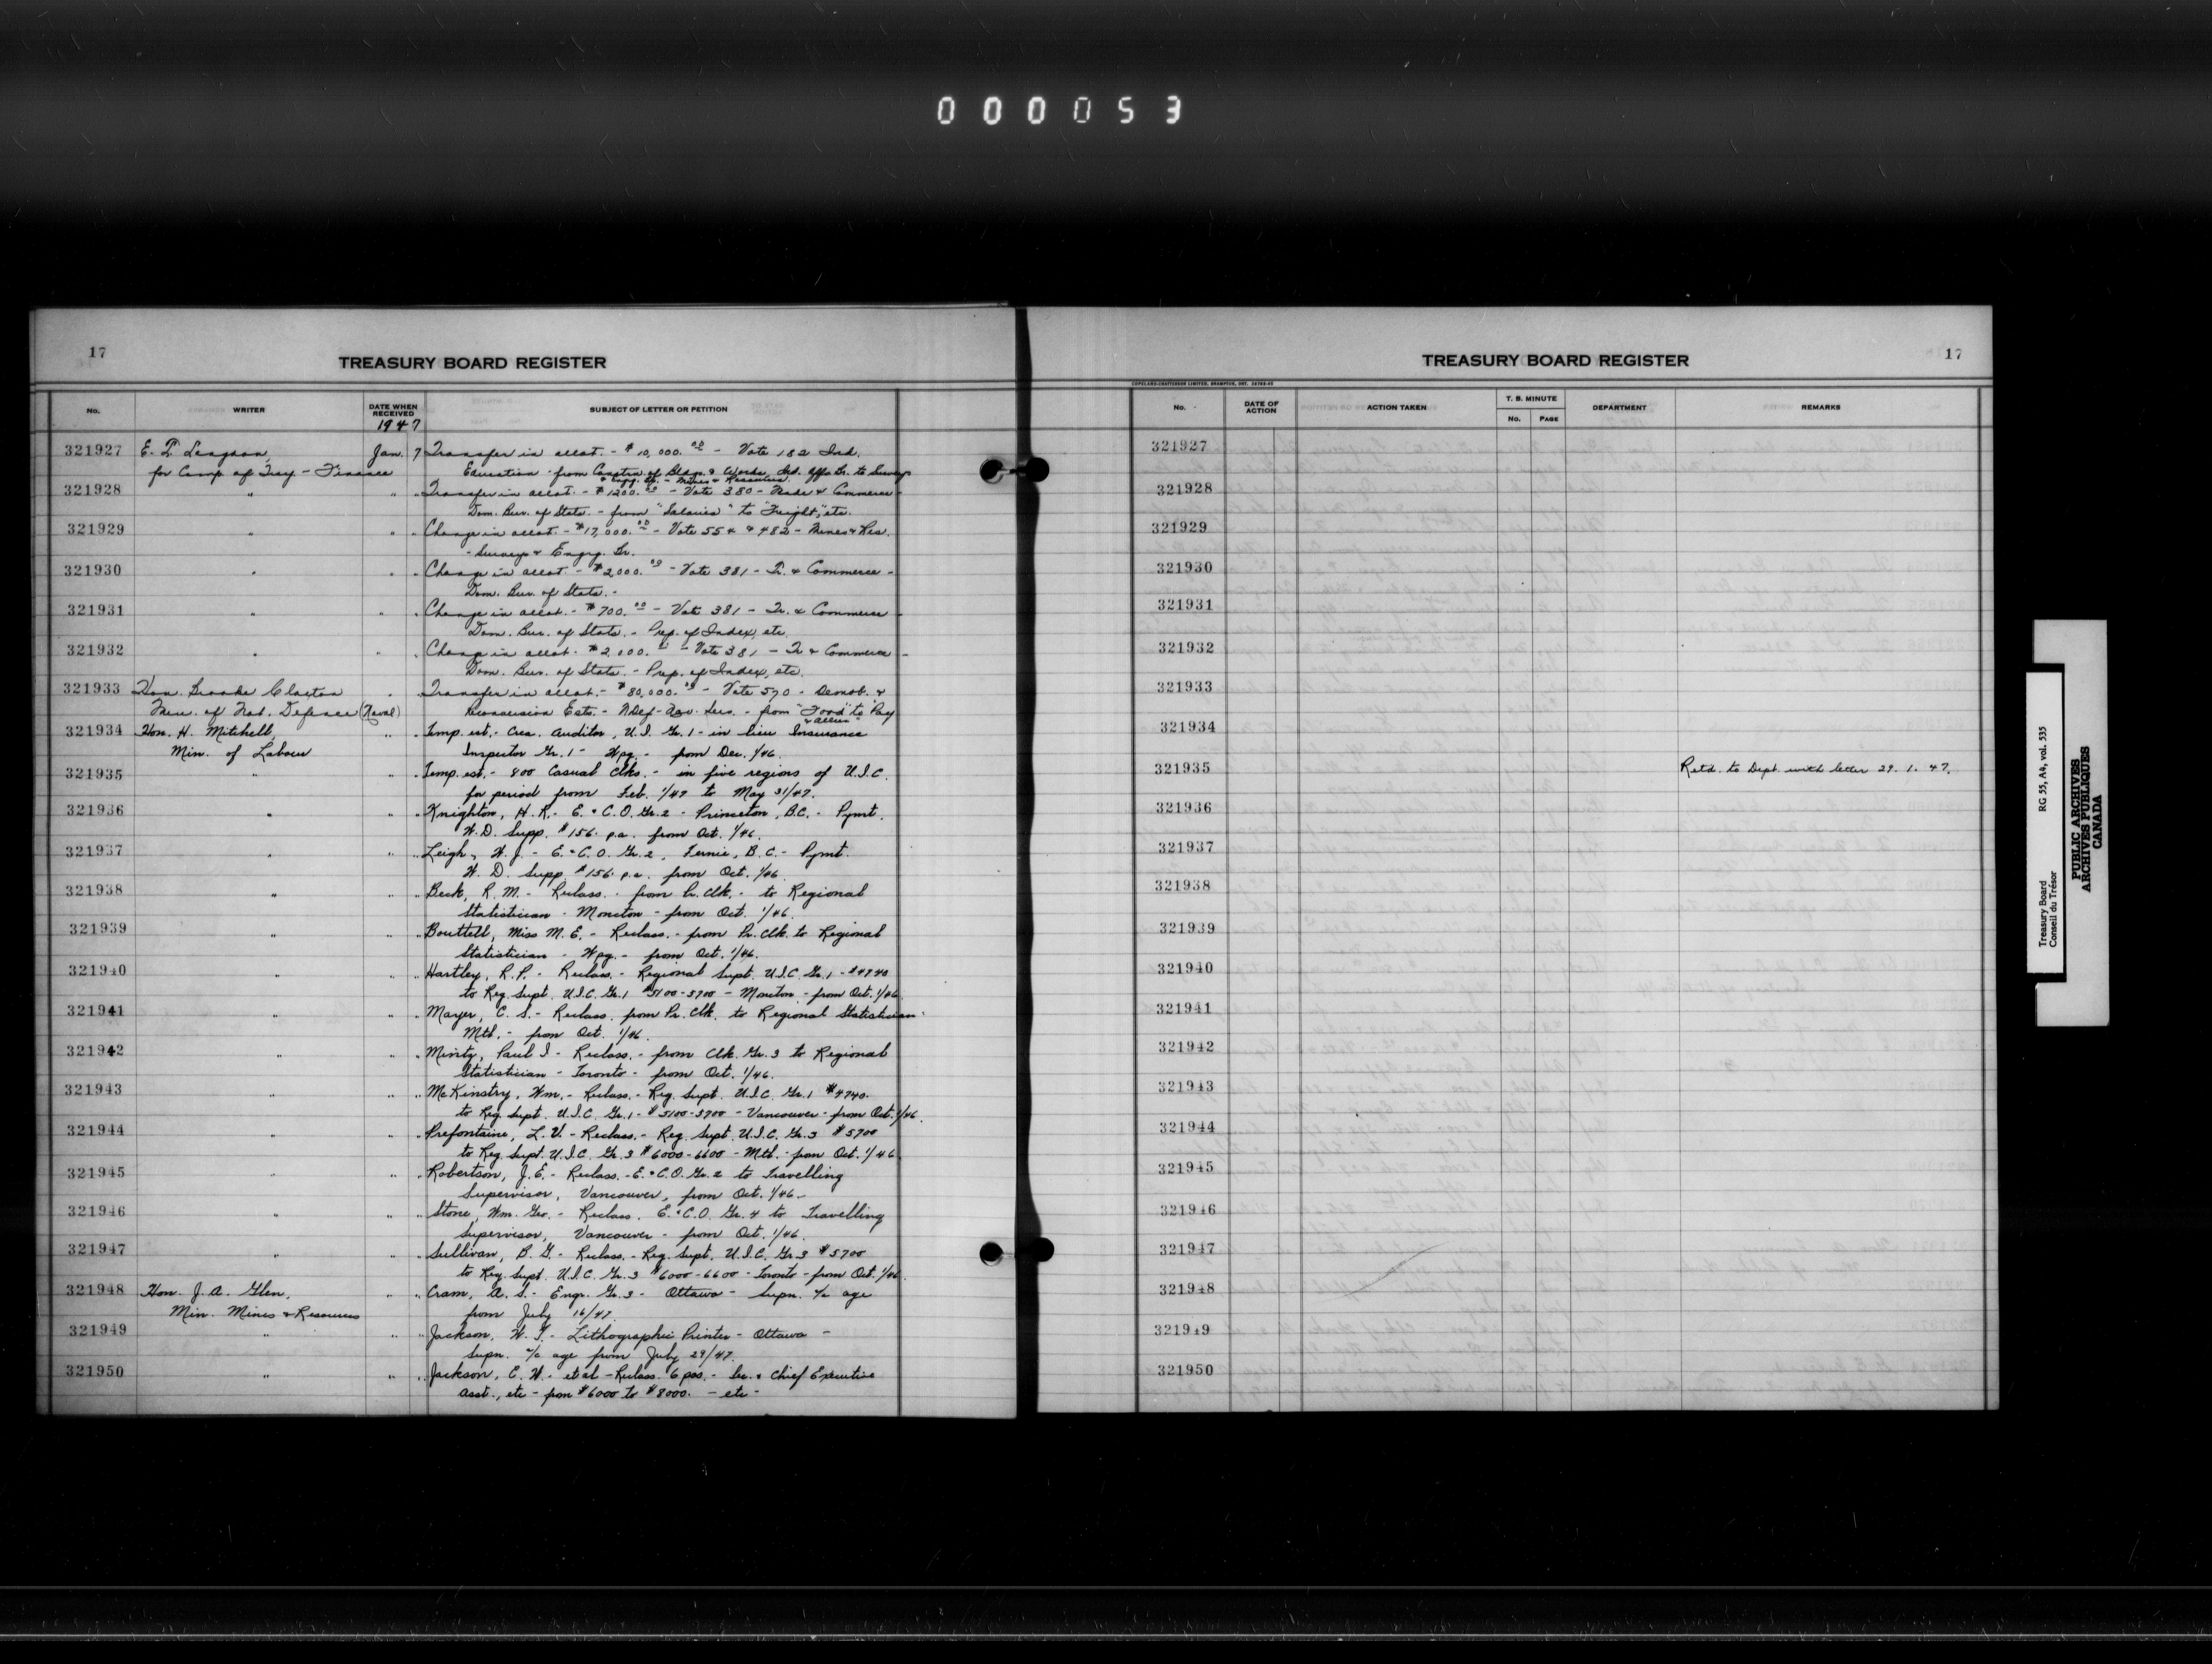 000053
17
TREASURY BOARD REGISTER
No.
WRITER
DATE WHEN RECEIVED
1947
SUBJECT OF LETTER OR PETITION
321927 E. T. Langdon, Jan. 7 Transfer in allot. - $10,000.00 - Vote 182 Ind.
for Comp. of Trey - Finance Education - from Constn. of Bldgs. & Works, Ind. Affs. Br. to Surveys
& Engg. Br. - Mines & Resources.
321928 " " " Transfer in allot. - $1200.00 - Vote 380 - Trade & Commerce -
Dom. Bur. of Stats. - from "Salaries" to "Freight", etc.
321929 " " " Change in allot. - $17,000.00 - Vote 55 & 482 - Mines & Res.
- Surveys & Engrg. Br.
321930 " " " Change in allot. - $2,000.00 - Vote 381 - Tr. & Commerce -
Dom. Bur. of Stats. -
321931 " " " Change in allot. - $700.00 - Vote 381 - Tr. & Commerce -
Dom. Bur. of Stats. - Prep. of Index, etc.
321932 " " " Change in allot. $2,000. - Vote 381 - Tr. & Commerce -
Dom. Bur. of Stats. - Prep. of Index, etc.
321933 Hon. Brooke Claxton " " Transfer in allot. - $80,000.00 - Vote 590 - Demob. &
Min. of Nat. Defence (Naval) Reconversion Ests. - N Def - Nav. Ser. - from "Food" to "Pay
& Allces"
321934 Hon. H. Mitchell, " " Temp. est. - Crea. Auditor, U.I. Gr. 1 - in lieu Insurance
Min. of Labour Inspector Gr. 1 - Wpg. - from Dec. 1/46.
321935 " " " Temp. est. - 800 Casual Clks. - in five regions of U.I.C.
for period from Feb. 1/47 to May 31/47.
321936 " " " Knighton, H. R. - E. & C.O. Gr. 2 - Princeton, B.C. - Pymt.
W.D. Supp. $156. p.a. from Oct. 1/46.
321937 " " " Leigh, W. J. - E. & C.O. Gr. 2, Fernie, B.C. - Pymt.
W. D. Supp. $156. p.a. from Oct. 1/46.
321938 " " " Beck, R. M. - Reclass. - from Pr. Clk. - to Regional
Statistician - Moncton - from Oct. 1/46.
321939 " " " Bouttell, Miss M. E. - Reclass. - from Pr. Clk. to Regional
Statistician - Wpg. - from Oct. 1/46.
321940 " " " Hartley, R. P. - Reclass. - Regional Supt. U.I.C. Gr. 1 - $4740
to Reg. Supt. U.I.C. Gr. 1 $5100-5700 - Moncton - from Oct. 1/46.
321941 " " " Mayer, C. S. - Reclass. from Pr. Clk. to Regional Statistician -
Mtl. - from Oct. 1/46.
321942 " " " Minty, Paul I - Reclass. - from Clk. Gr. 3 to Regional
Statistician - Toronto - from Oct. 1/46.
321943 " " " McKinstry, Wm. - Reclass. - Reg. Supt. U.I.C. Gr. 1 $4740.
to Reg. Supt. U.I.C. Gr. 1 - $5100-5700 - Vancouver - from Oct. 1/46.
321944 " " " Prefontaine, L. V. - Reclass. - Reg. Supt. U.I.C. Gr. 3 $5700
to Reg. Supt. U.I.C. Gr. 3 $6000-6600 - Mtl. - from Oct. 1/46.
321945 " " " Robertson, J. E. - Reclass. - E. & C.O. Gr. 2 to Travelling
Supervisor, Vancouver, from Oct. 1/46.
321946 " " " Stone, Wm. Geo. - Reclass. E. & C.O. Gr. 4 to Travelling
Supervisor, Vancouver - from Oct. 1/46.
321947 " " " Sullivan, B. G. - Reclass. - Reg. Supt. U.I.C. Gr. 3 $5700
to Reg. Supt. U.I.C. Gr. 3 $6000-6600 - Toronto - from Oct. 1/46.
321948 Hon. J. A. Glen, " " Cram, A. S. - Engr. Gr. 3 - Ottawa - Supn. a/c age
Min. Mines & Resources from July 16/47.
321949 " " " Jackson, W. T. - Lithographic Printer - Ottawa -
Supn. a/c age from July 29/47.
321950 " " " Jackson, C. W. - et al - Reclass. 6 pos. - Sec. & Chief Executive
Asst., etc - from $6000 to $8000. - etc -
TREASURY BOARD REGISTER
17
COPELAND-CHATTERSON LIMITED, BRAMPTON, ONT.
No.
DATE OF ACTION
ACTION TAKEN
T. B. MINUTE
No. PAGE
DEPARTMENT
REMARKS
321927
321928
321929
321930
321931
321932
321933
321934
321935 Retd. to Dept. with letter 29. 1. 47.
321936
321937
321938
321939
321940
321941
321942
321943
321944
321945
321946
321947
321948
321949
321950
Treasury Board RG 55, A4, vol. 535
Conseil du Trésor
PUBLIC ARCHIVES
ARCHIVES PUBLIQUES
CANADA